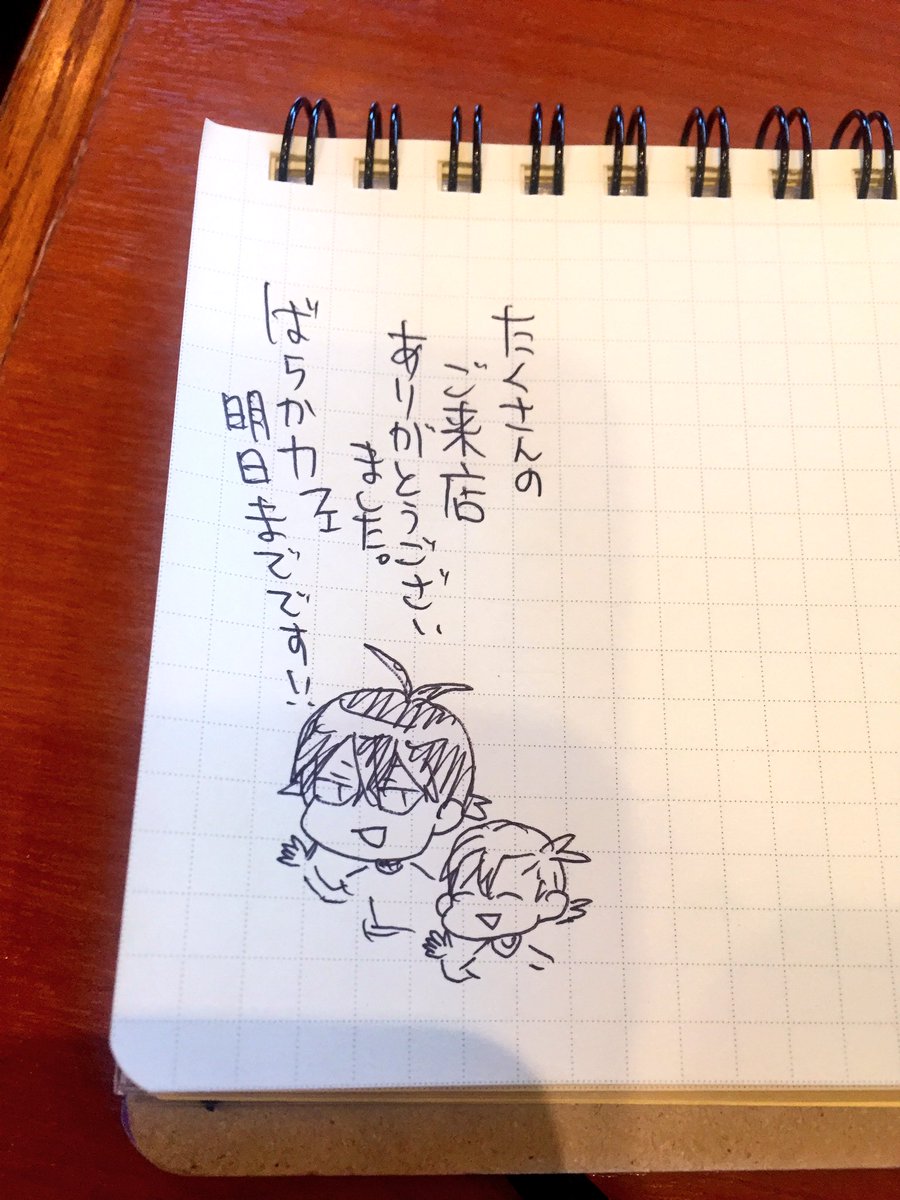 たくさんの
ご来店
ありがとうござい
ました。
ばらかカフェ
明日までです!!